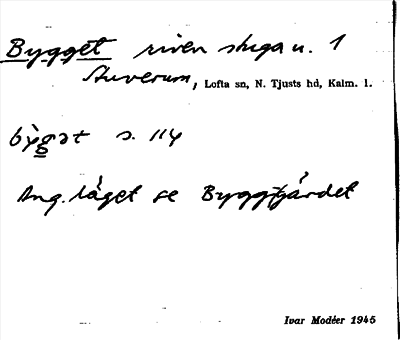 Bygget riven stuga u. 1
Stuverum, Lofta sn, N. Tjusts hd, Kalm. l.
bỳgət s. 114
Ang. läget se Byggtgärdet
Ivar Modéer 1945